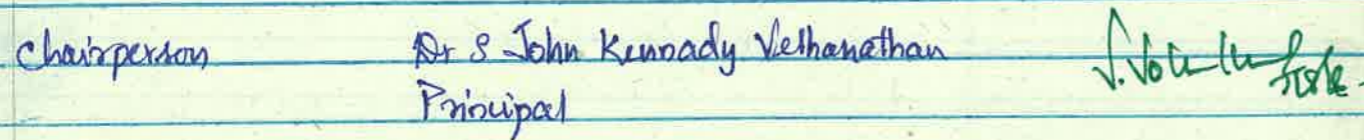 Chairperson Dr S John Kennady Vethanathan
Principal